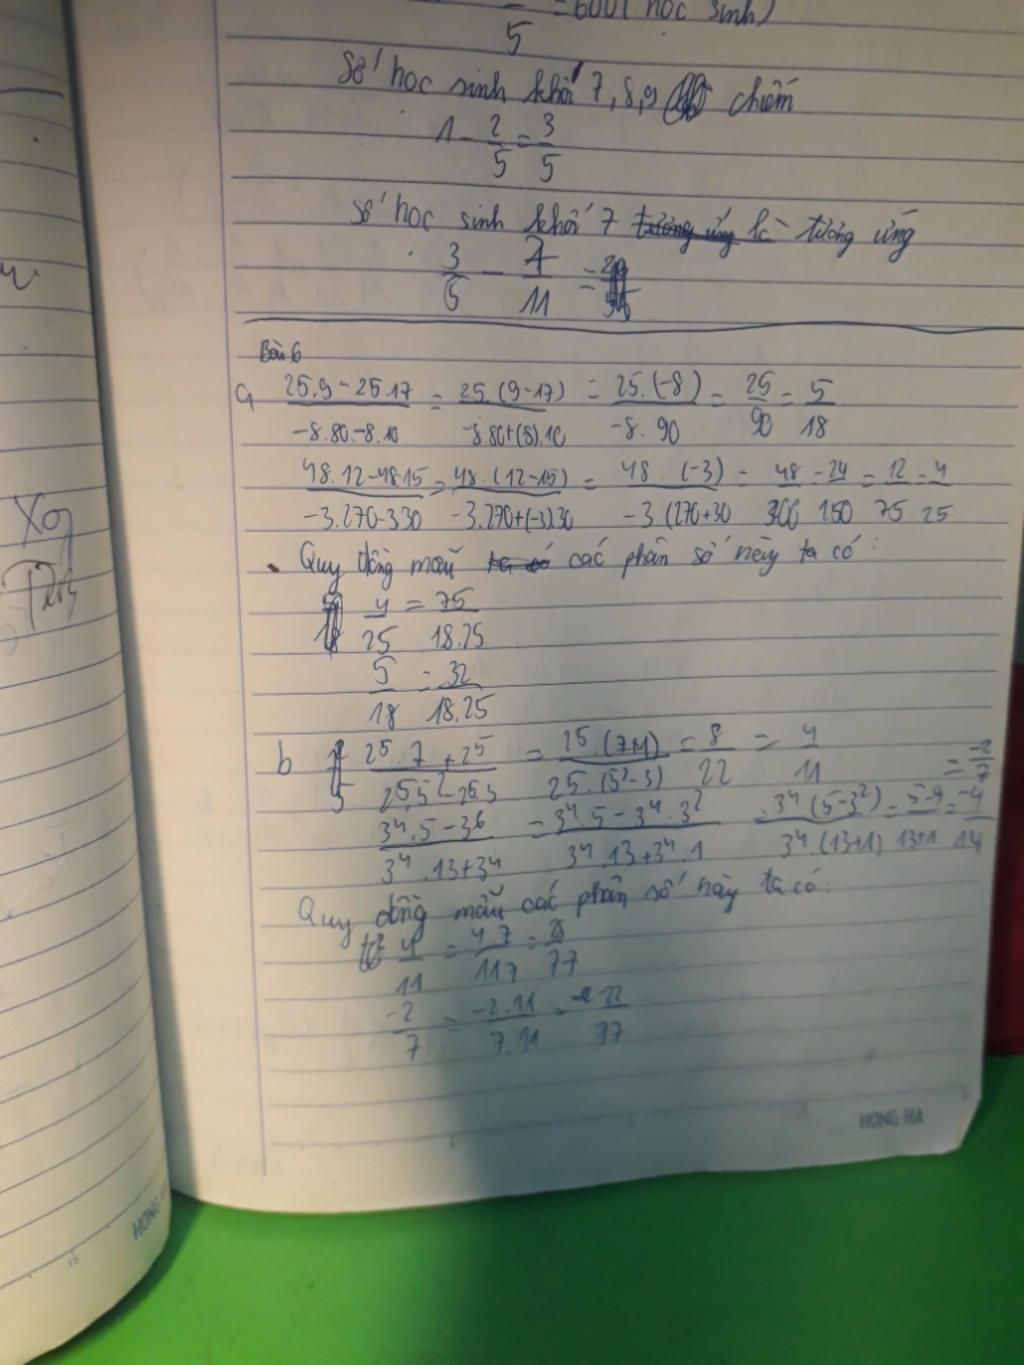 5 = 600 ( học sinh)
Số học sinh khối 7, 8, 9 chiếm
1 - 2/5 = 3/5
số học sinh khối 7 tương ứng là tương ứng
3/5 - 7/11 =
Bài 6
a 25.9-25.17/-8.80-8.10 = 25.(9-17)/-8.80+(-8).10 = 25.(-8)/-8.90 = 25/90 = 5/18
48.12-48.15/-3.270-330 = 48.(12-15)/-3.270+(-3)30 = 48.(-3)/-3(270+30 = 48/300 = 24/150 = 12/75 = 4/25
Quy đồng mẫu ta có các phân số này ta có:
4/25 = 75/18.25
5/18 = 32/18.25
b 2⁵.7+2⁵/2⁵.5²-2⁵.3 = 2⁵.(7+1)/2⁵.(5²-3) = 8/22 = 4/11
3⁴.5-3⁶/3⁴.13+3⁴ = 3⁴.5-3⁴.3²/3⁴.13+3⁴.1 = 3⁴(5-3²)/3⁴.(13+1) = 5-9/13+1 = -4/14 = -2/7
Quy đồng mẫu các phân số này ta có:
4/11 = 4.7/11.7 = 28/77
-2/7 = -2.11/7.11 = -22/77
HONG HA
Xog
HONG